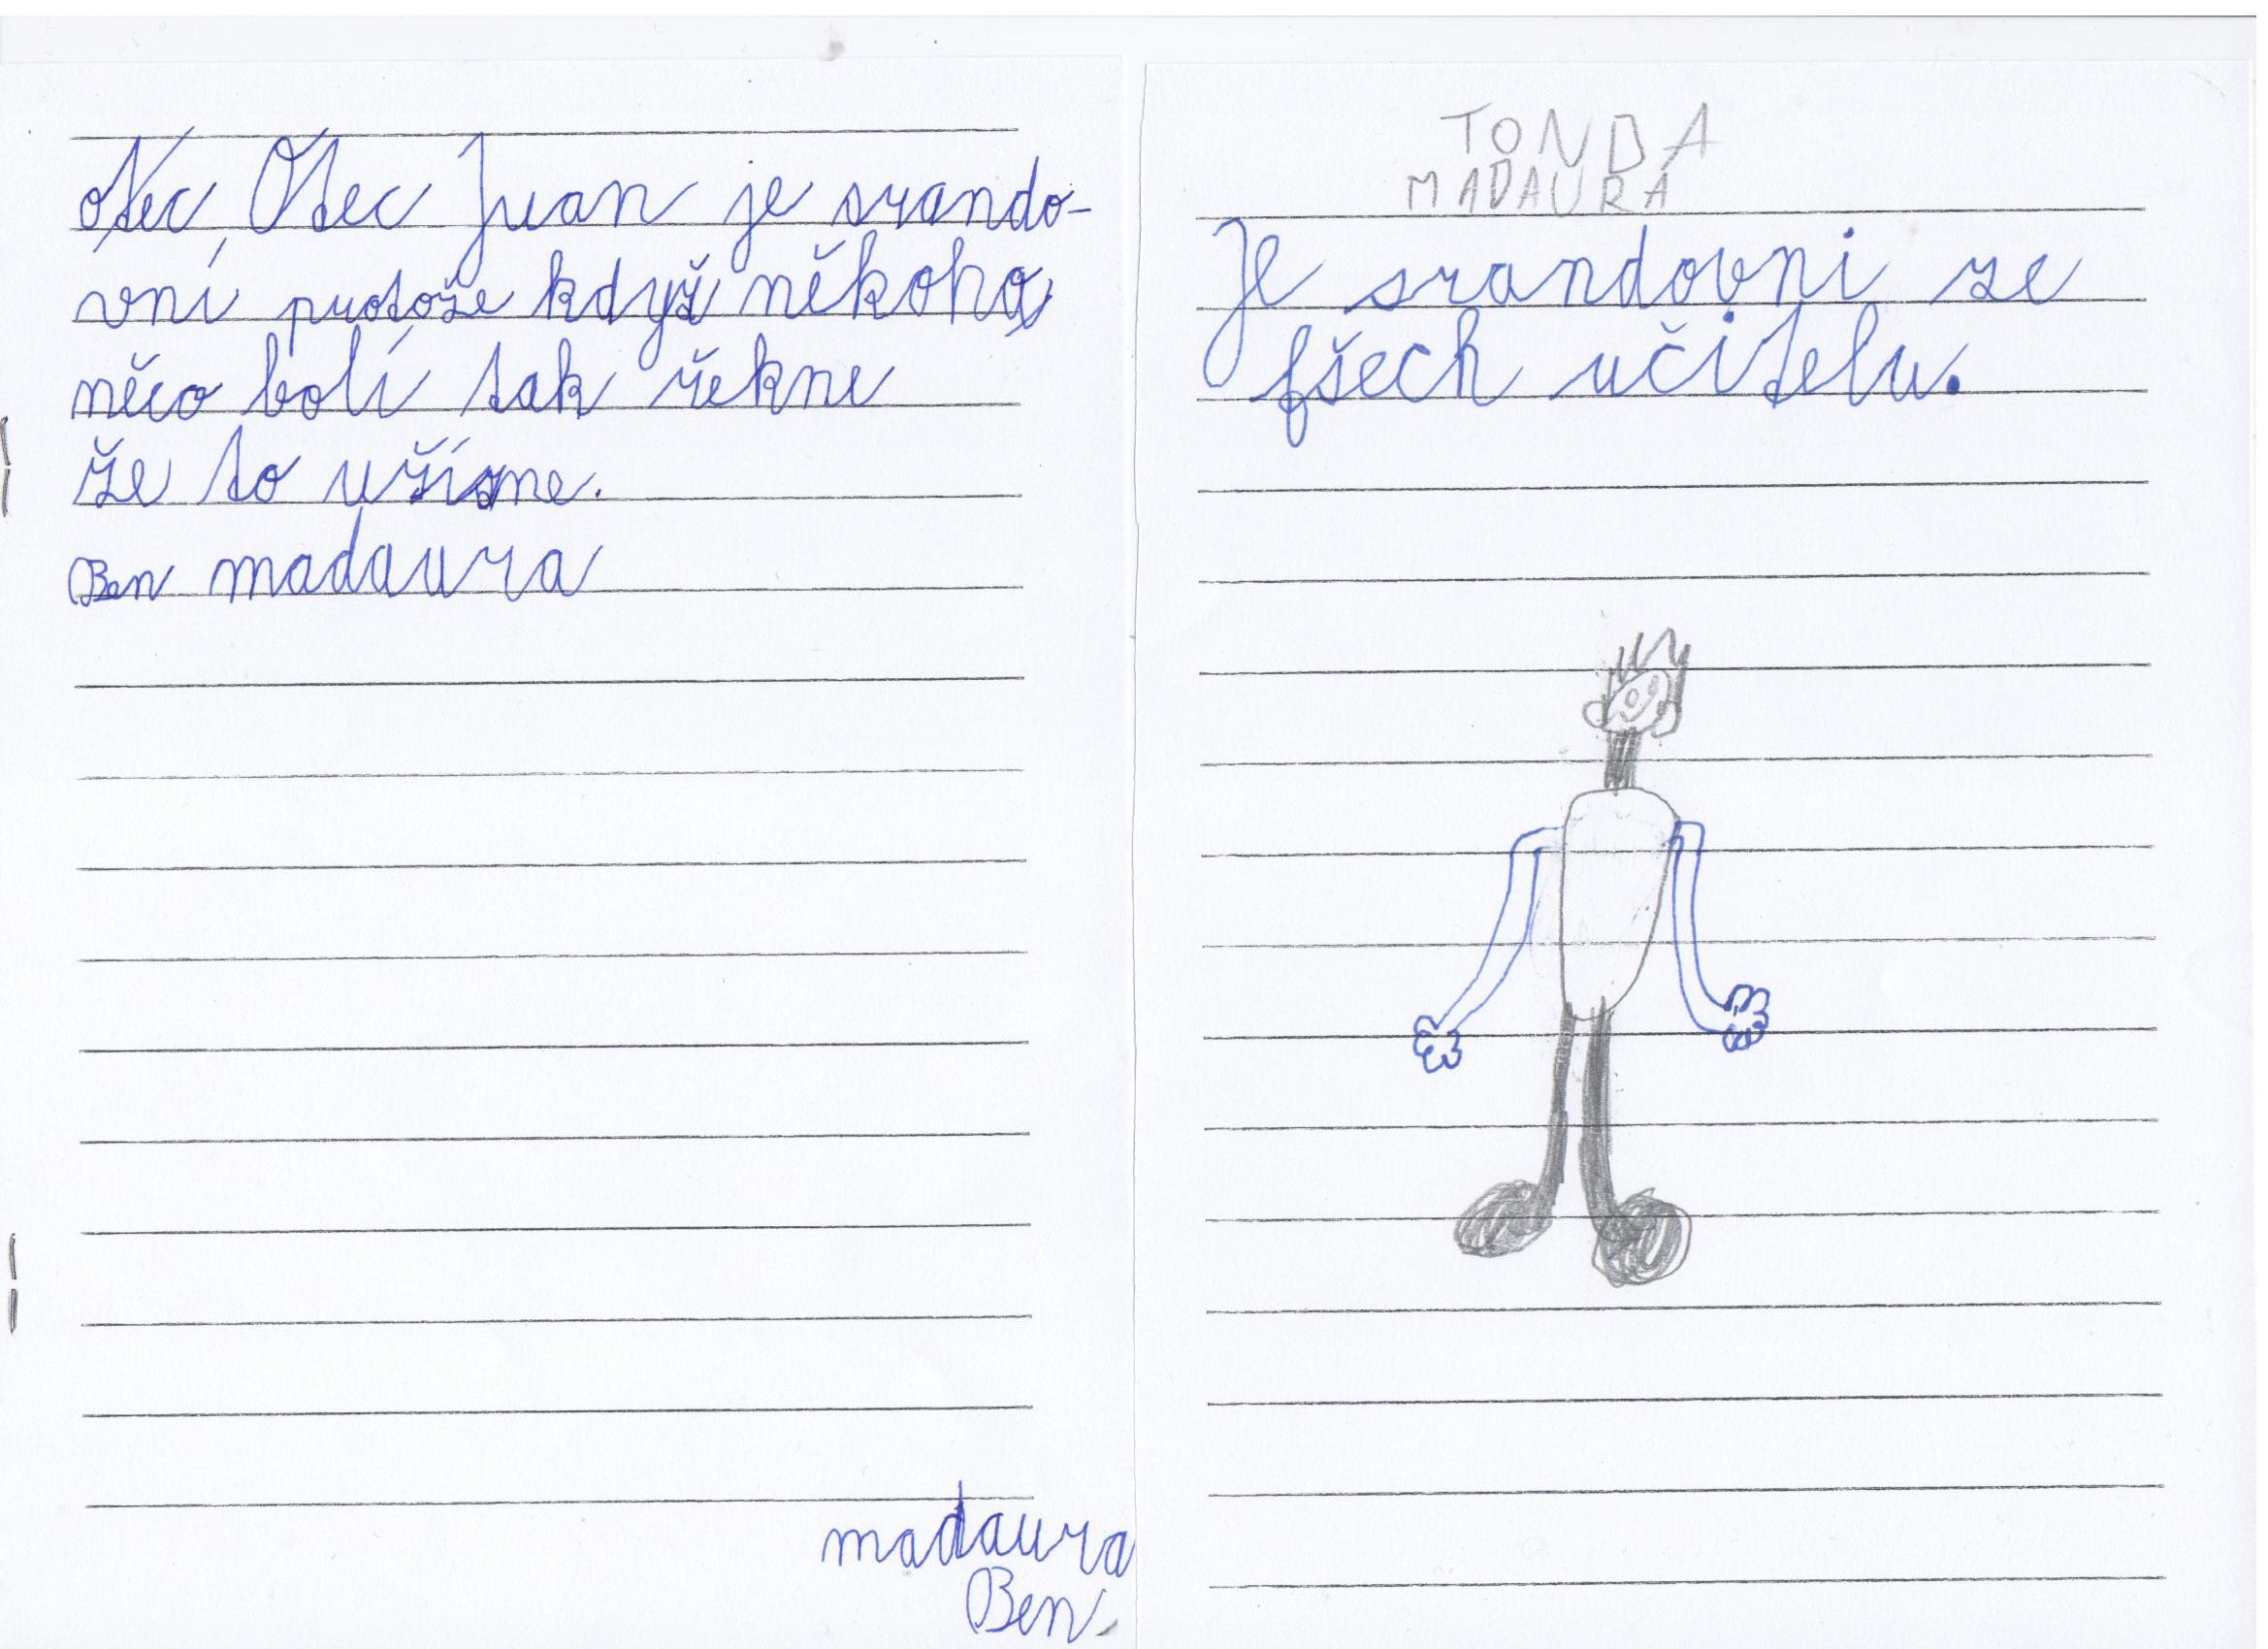 Otec, Otec Juan je srando-
vní protože když někoho
něco bolí tak řekne
že to užízne.
Ben madaura
madaura
Ben
TONDA
MADAURA
Je srandovni ze
fšech učitelu.